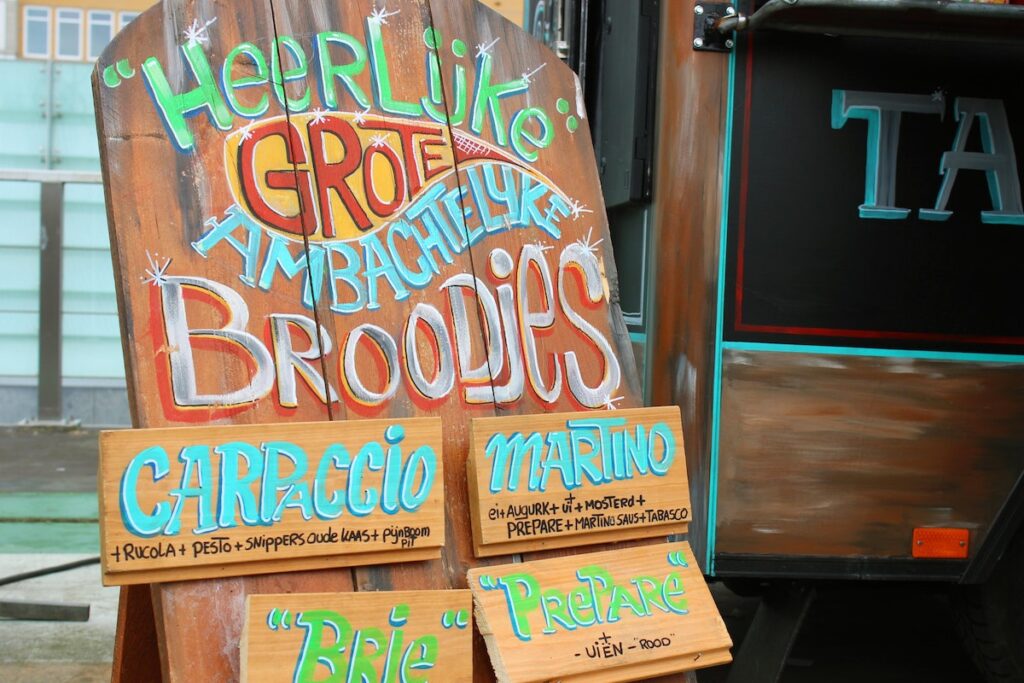 "HEERLIJKE"
GROTE
AMBACHTELIJKE
BROODJES
CARPACCIO
+ RUCOLA + PESTO + SNIPPERS OUDE KAAS + PIJNBOOM
PIT
MARTINO
ei + AUGURK + ui + MOSTERD +
PREPARE + MARTINO SAUS + TABASCO
"BRIE"
"PREPARÉ"
+
- UIEN - "ROOD"
TA